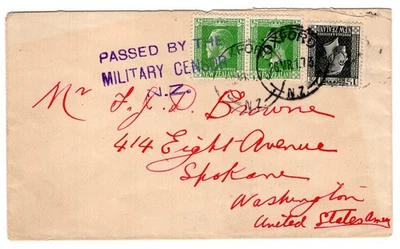 PASSED BY THE
MILITARY CENSOR
N.Z.
OXFORD
N.Z.
OXFORD
26 MR 17
N.Z.
NEW ZEALAND
Mr F. J. D. Browne
414 Eight Avenue
Spokane
Washington
United States Amer